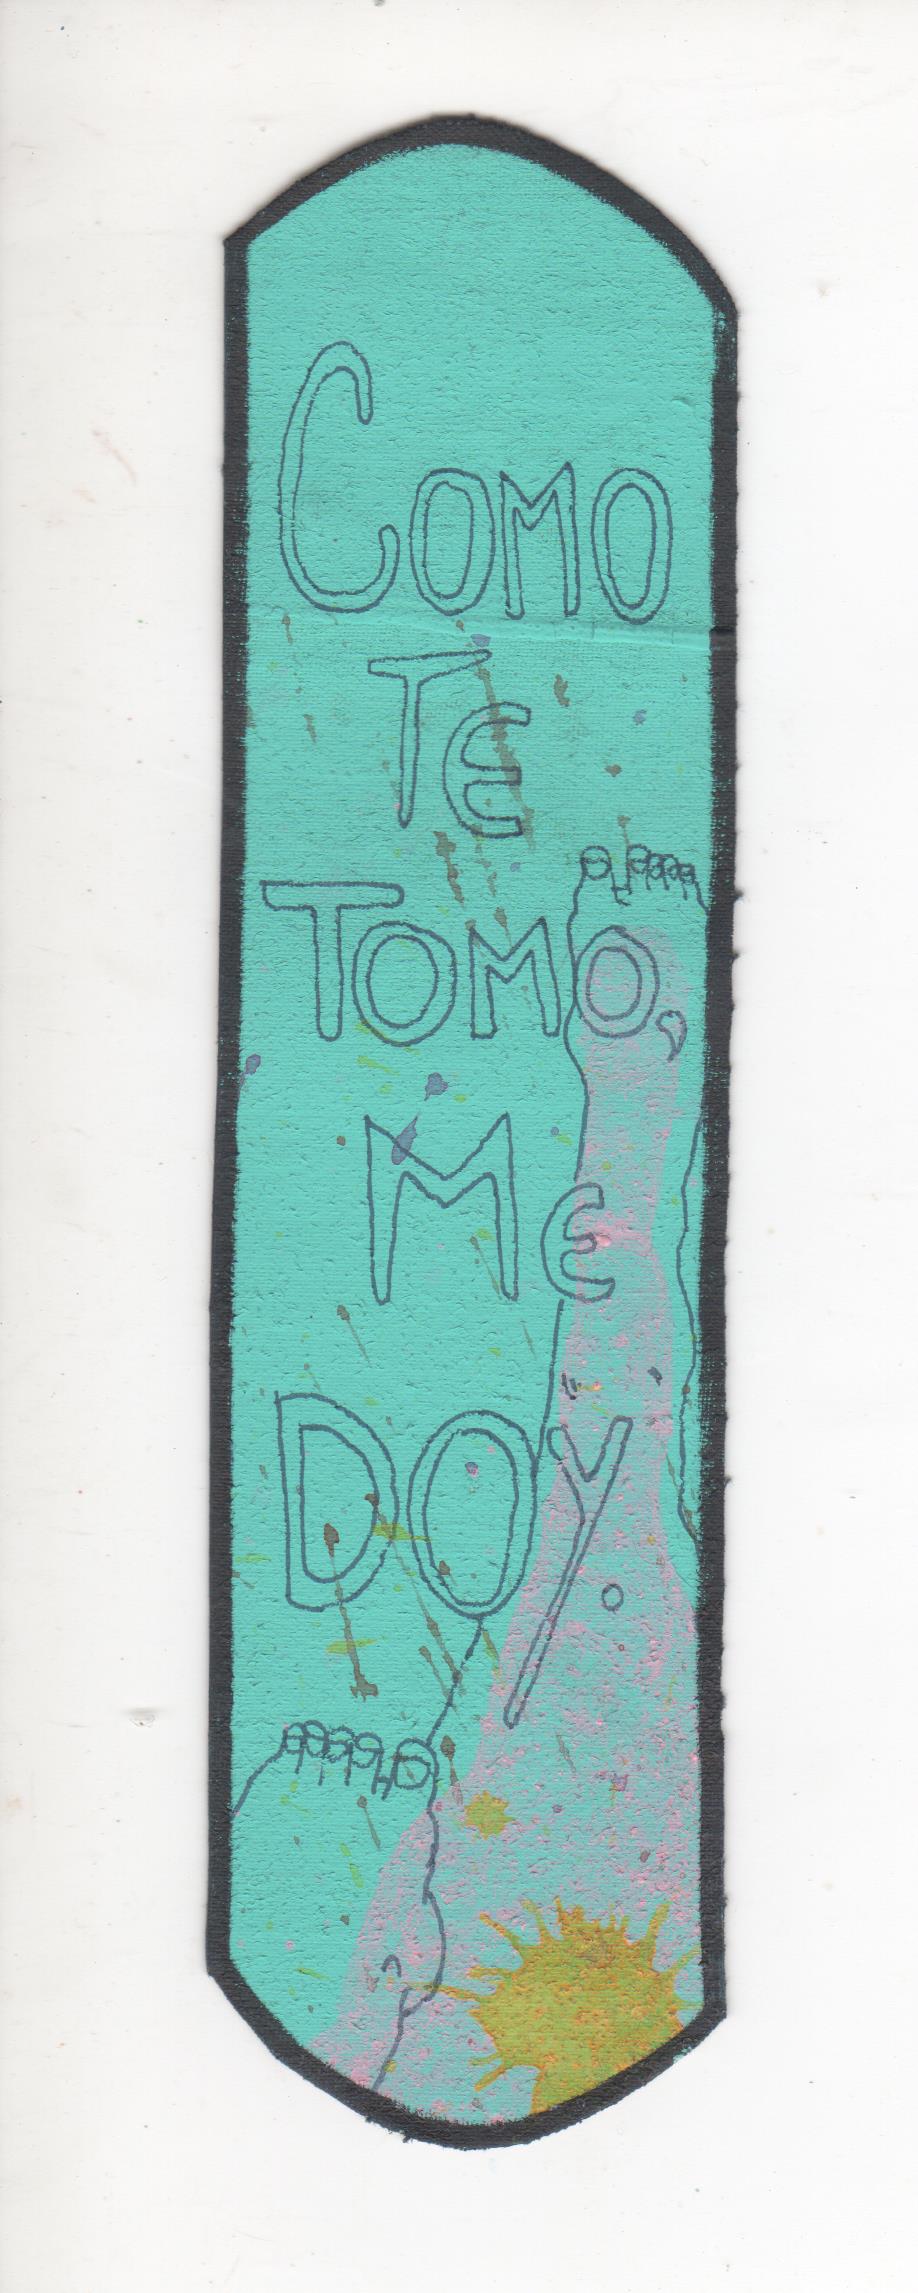 COMO
TE
TOMO,
ME
DOY.